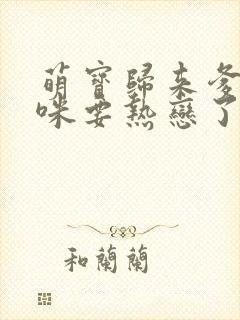 萌寶歸來爹
咪要熱戀了
和蘭蘭